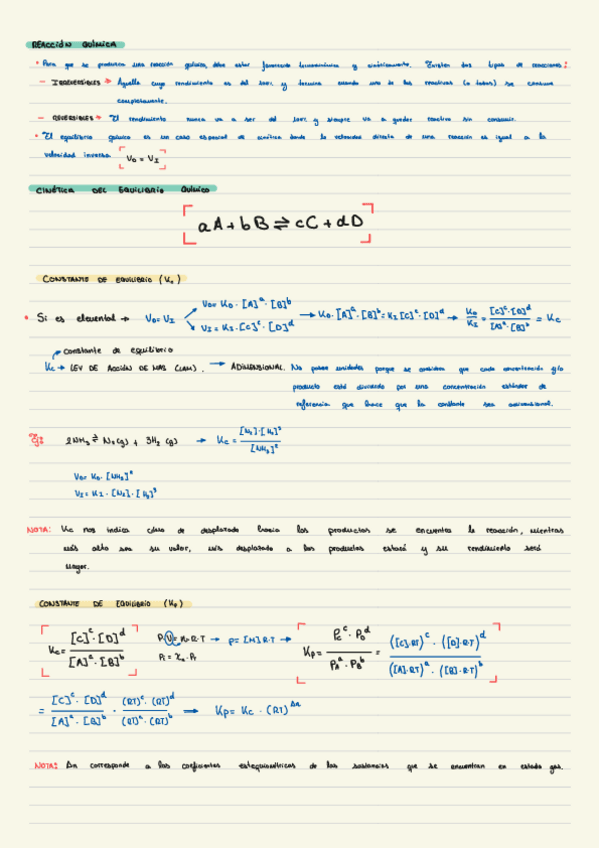 REACCIÓN QUÍMICA
• Para que se produzca una reacción química, debe estar favorecida termodinámica y cinéticamente. Existen dos tipos de reacciones:
– IRREVERSIBLES → Aquella cuyo rendimiento es del 100%. y termina cuando uno de los reactivos (o todos) se consume
completamente.
– REVERSIBLES → El rendimiento nunca va a ser del 100%. y siempre va a quedar reactivo sin consumir.
• El equilibrio químico es un caso especial de cinética donde la velocidad directa de una reacción es igual a la
velocidad inversa. V_D = V_I
CINÉTICA DEL EQUILIBRIO QUÍMICO
aA + bB ⇌ cC + dD
CONSTANTE DE EQUILIBRIO (Kc)
• Si es elemental → V_D = V_I V_D = K_D · [A]^a · [B]^b V_I = K_I · [C]^c · [D]^d → K_D · [A]^a · [B]^b = K_I [C]^c · [D]^d → K_D / K_I = [C]^c · [D]^d / [A]^a · [B]^b = Kc
constante de equilibrio
Kc → LEY DE ACCIÓN DE MAS (LAM). → ADIMENSIONAL. No posee unidades porque se considera que cada concentración y/o
producto está dividido por una concentración estándar de
referencia que hace que la constante sea adimensional.
Ej: 2NH₃ ⇌ N₂(g) + 3H₂(g) → Kc = [N₂]·[H₂]³ / [NH₃]²
V_D = K_D · [NH₃]²
V_I = K_I · [N₂] · [H₂]³
NOTA: Kc nos indica cómo de desplazada hacia los productos se encuentra la reacción, mientras
más alto sea su valor, más desplazado a los productos estará y su rendimiento será
mayor.
CONSTANTE DE EQUILIBRIO (Kp)
Kc = [C]^c · [D]^d / [A]^a · [B]^b P·V = n·R·T → P = [M]·R·T → Kp = P_C^c · P_D^d / P_A^a · P_B^b = ([C]·RT)^c · ([D]·R·T)^d / ([A]·R·T)^a · ([B]·R·T)^b
= [C]^c · [D]^d / [A]^a · [B]^b · (RT)^c · (RT)^d / (RT)^a · (RT)^b → Kp = Kc · (RT)^Δn
NOTA: Δn corresponde a los coeficientes estequiométricos de las sustancias que se encuentran en estado gas.